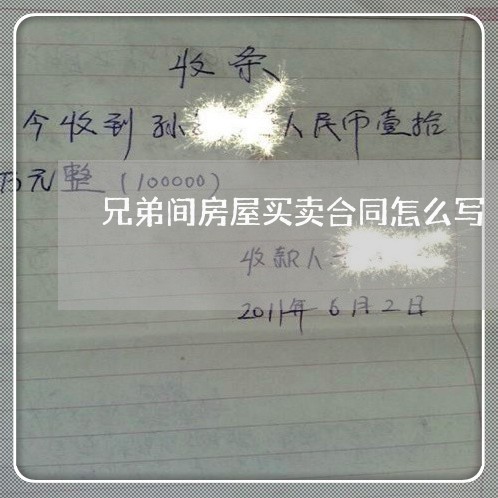 收条
今收到孙 人民币壹拾
万元整(100000)
兄弟间房屋买卖合同怎么写
收款人
2011年6月2日